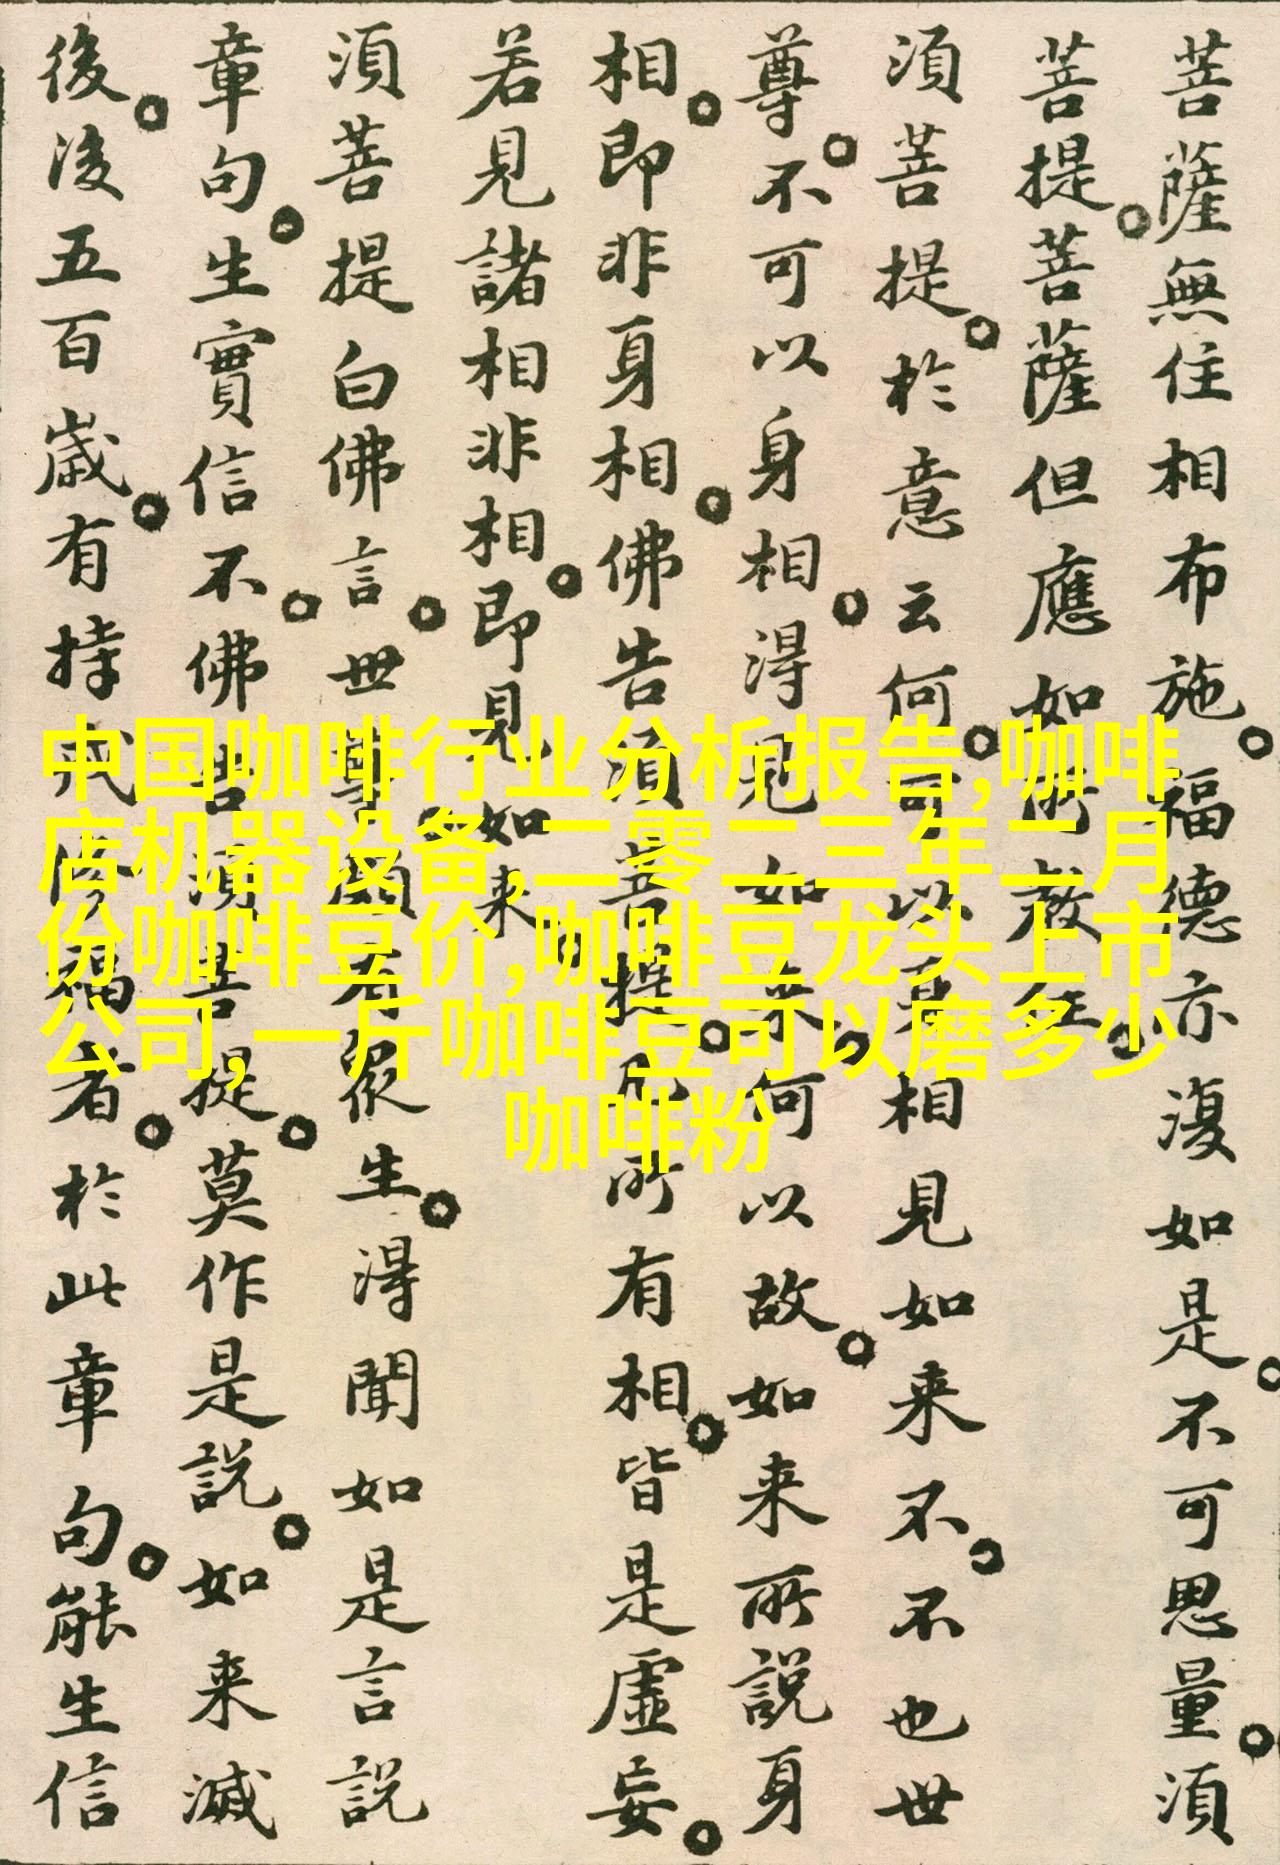 菩薩無住相布施福德亦復如是不可思量須
菩提菩薩但應如所教住
須菩提於意云何可以身相見如来不不也世
尊不可以身相得見如来何以故如来所說身
相即非身相佛告須菩提凡所有相皆是虛妄
若見諸相非相即見如来
須菩提白佛言世尊頗有眾生得聞如是言說
章句生實信不佛告須菩提莫作是說如来滅
後後五百歲有持戒修福者於此章句能生信
中国咖啡行业分析报告,咖啡
店机器设备,二零二三年二月
份咖啡豆价,咖啡豆龙头上市
公司,一斤咖啡豆可以磨多少
咖啡粉